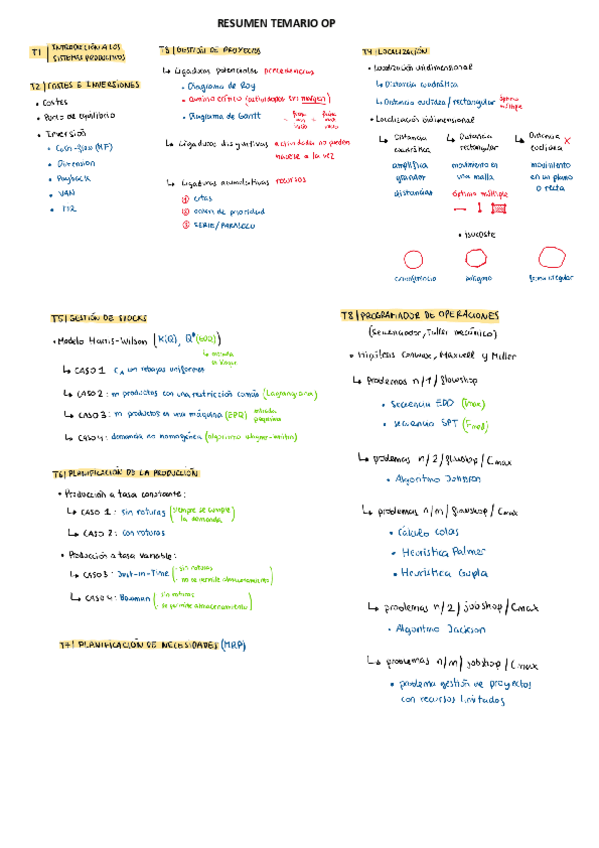 RESUMEN TEMARIO OP
T1 | INTRODUCCIÓN A LOS
SISTEMAS PRODUCTIVOS
T2 | COSTES E INVERSIONES
• Costes
• Punto de equilibrio
• Inversión
• Cash-flow (MF)
• Dimension
• Payback
• VAN
• TIR
T3 | GESTIÓN DE PROYECTOS
↳ Ligaduras potenciales precedencias
• Diagrama de Roy
• camino crítico (actividades sin margen)
• Diagrama de Gantt
↳ Ligaduras disyuntivas actividades no pueden
hacerse a la vez
↳ Ligaduras acumulativas recursos
① cotas
② orden de prioridad
③ SERIE/PARALELO
T4 | LOCALIZACIÓN
• Localización unidimensional
↳ Distancia cuadrática
↳ Distancia euclídea / rectangular óptimo múltiple
• Localización bidimensional
↳ Distancia cuadrática
amplifica grandes distancias
↳ Distancia rectangular
movimiento en una malla
óptimo múltiple
↳ Distancia euclídea X
movimiento en un plano o recta
• isocoste
circunferencia
polígono
forma irregular
T5 | GESTIÓN DE STOCKS
• Modelo Harris-Wilson (K(Q), Q* (EOQ))
↳ CASO 1: CA con rebajas uniformes
↳ CASO 2: m productos con una restricción común (Lagrangiana)
↳ CASO 3: m productos en una máquina (EPQ)
↳ CASO 4: demanda no homogénea (algoritmo wagner-whitin)
T6 | PLANIFICACIÓN DE LA PRODUCCIÓN
• Producción a tasa constante:
↳ CASO 1: sin roturas (siempre se cumple
la demanda)
↳ CASO 2: con roturas
• Producción a tasa variable:
↳ CASO 3: Just-in-Time (· sin roturas
· no se permite almacenamiento)
↳ CASO 4: Bowman (· sin roturas
· se permite almacenamiento)
T7 | PLANIFICACIÓN DE NECESIDADES (MRP)
T8 | PROGRAMADOR DE OPERACIONES
(secuenciador, Taller mecánico)
• Hipótesis Conway, Maxwell y Miller
↳ Problemas n/1/flowshop
• secuencia EDD (Tmax)
• secuencia SPT (Fmed)
↳ problemas n/2/flowshop/Cmax
• Algoritmo Johnson
↳ problemas n/m/flowshop/Cmax
• Cálculo colas
• Heurística Palmer
• Heurística Gupta
↳ problemas n/2/jobshop/Cmax
• Algoritmo Jackson
↳ problemas n/m/jobshop/Cmax
• problema gestión de proyectos
con recursos limitados